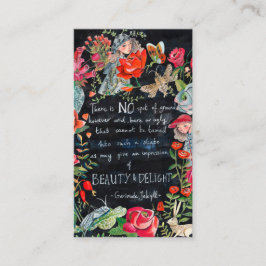 There is NO spot of ground
however arid, bare or ugly,
that cannot be tamed
into such a state
as may give an impression
of
BEAUTY & DELIGHT
- Gertrude Jekyll -